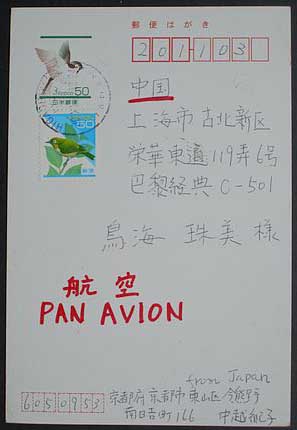 郵便はがき
201-103
nippon 50
日本郵便
中国
上海市古北新区
栄華東道119弄6号
巴黎経典C-501
鳥海 珠美 様
航空
PAN AVION
from Japan
京都府京都市東山区今熊野
南日吉町166
6050953